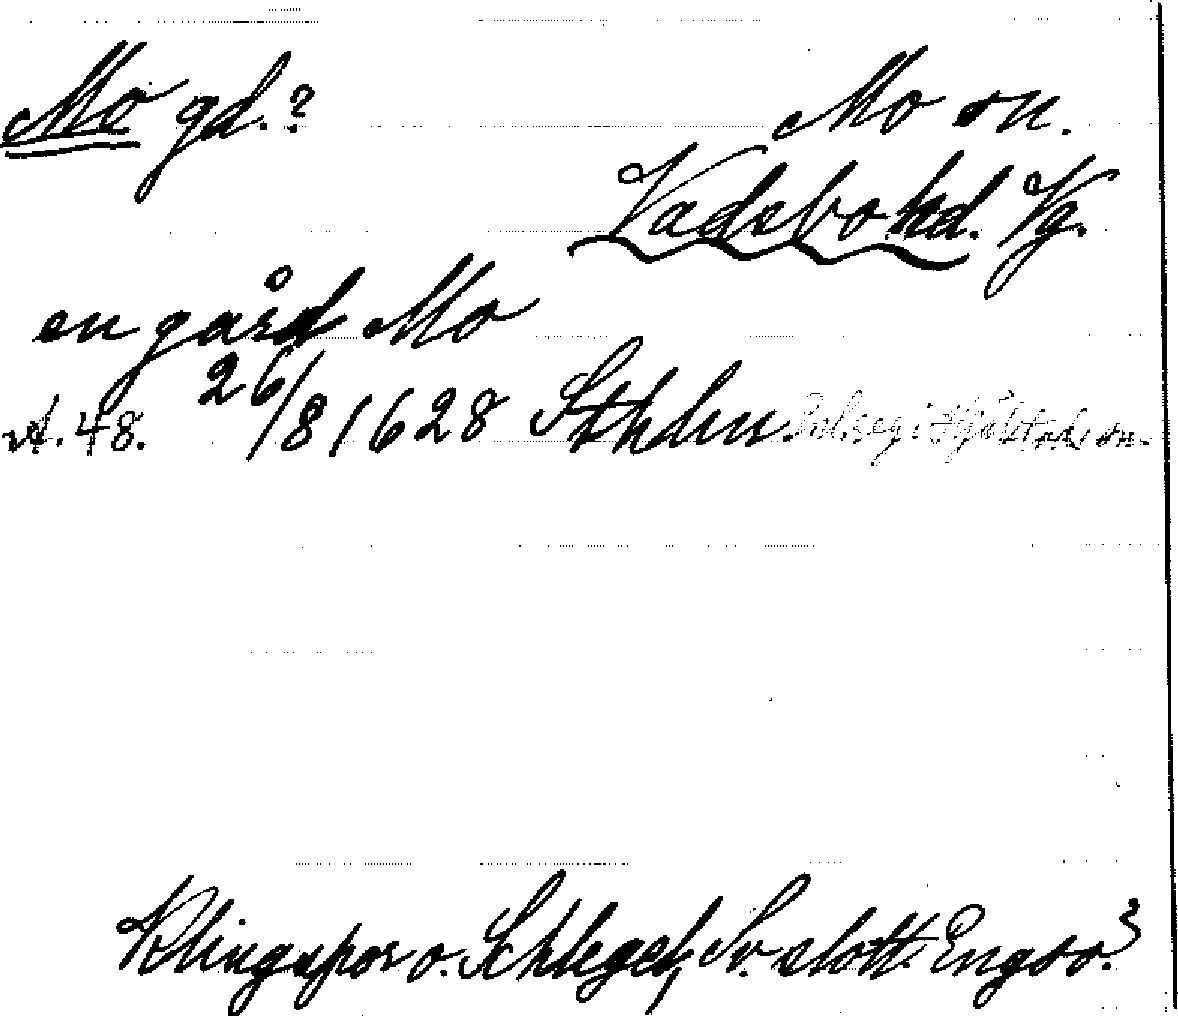 Mo gd.? Mo sn.
Vadsbo hd. Vg.
en gård Mo
A. 48. 26/8 1628 Sthlm
Klingspor o. Schlegel, Sv. slott. Engsö.